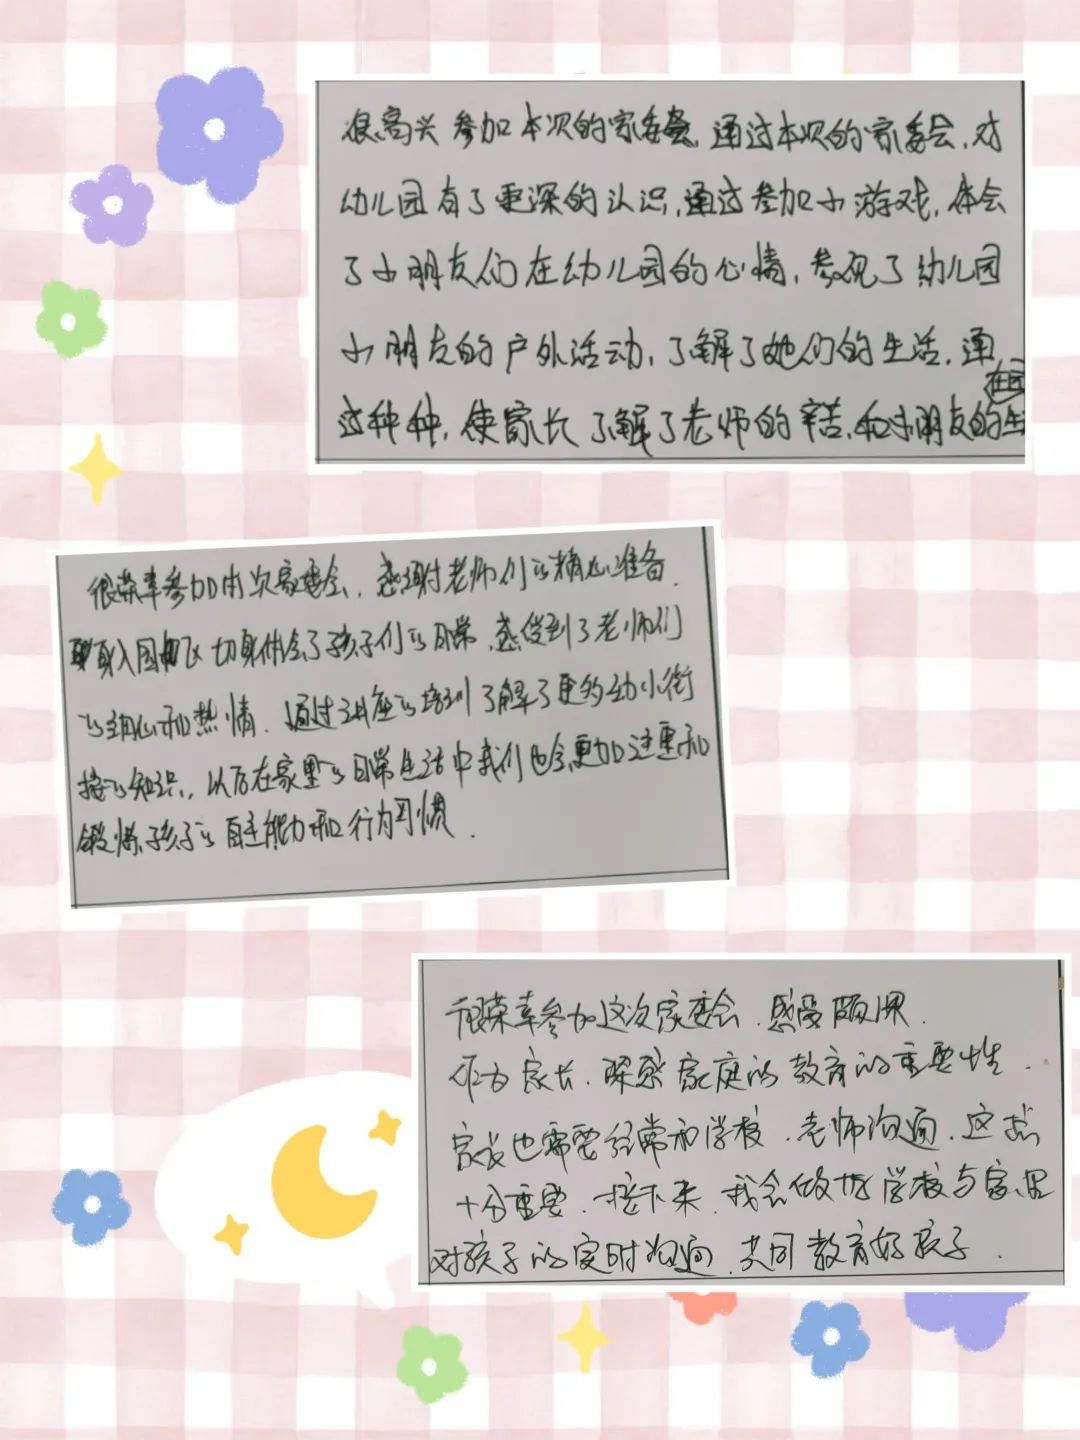 很高兴参加本次的家委会,通过本次的家委会,对
幼儿园有了更深的认识,通过参加小游戏,体会
了小朋友们在幼儿园的心情,参观了幼儿园
小朋友的户外活动,了解了她们的生活,通
在园
过种种,使家长了解了老师的辛苦,和小朋友的生
很荣幸参加本次家委会,感谢老师们的精心准备.
入园 切身体会了孩子们的日常,感受到了老师们
的细心和热情.通过讲座的培训了解了更多幼小衔
接的知识,以后在家里的日常生活中我们也会更加注重和
锻炼孩子的自主能力和行为习惯.
很荣幸参加这次家委会.感受颇深.
作为家长.深感家庭的教育的重要性.
家长也需要经常和学校.老师沟通.这点
十分重要.接下来.我会做好学校与家里
对孩子的实时沟通.共同教育好孩子.